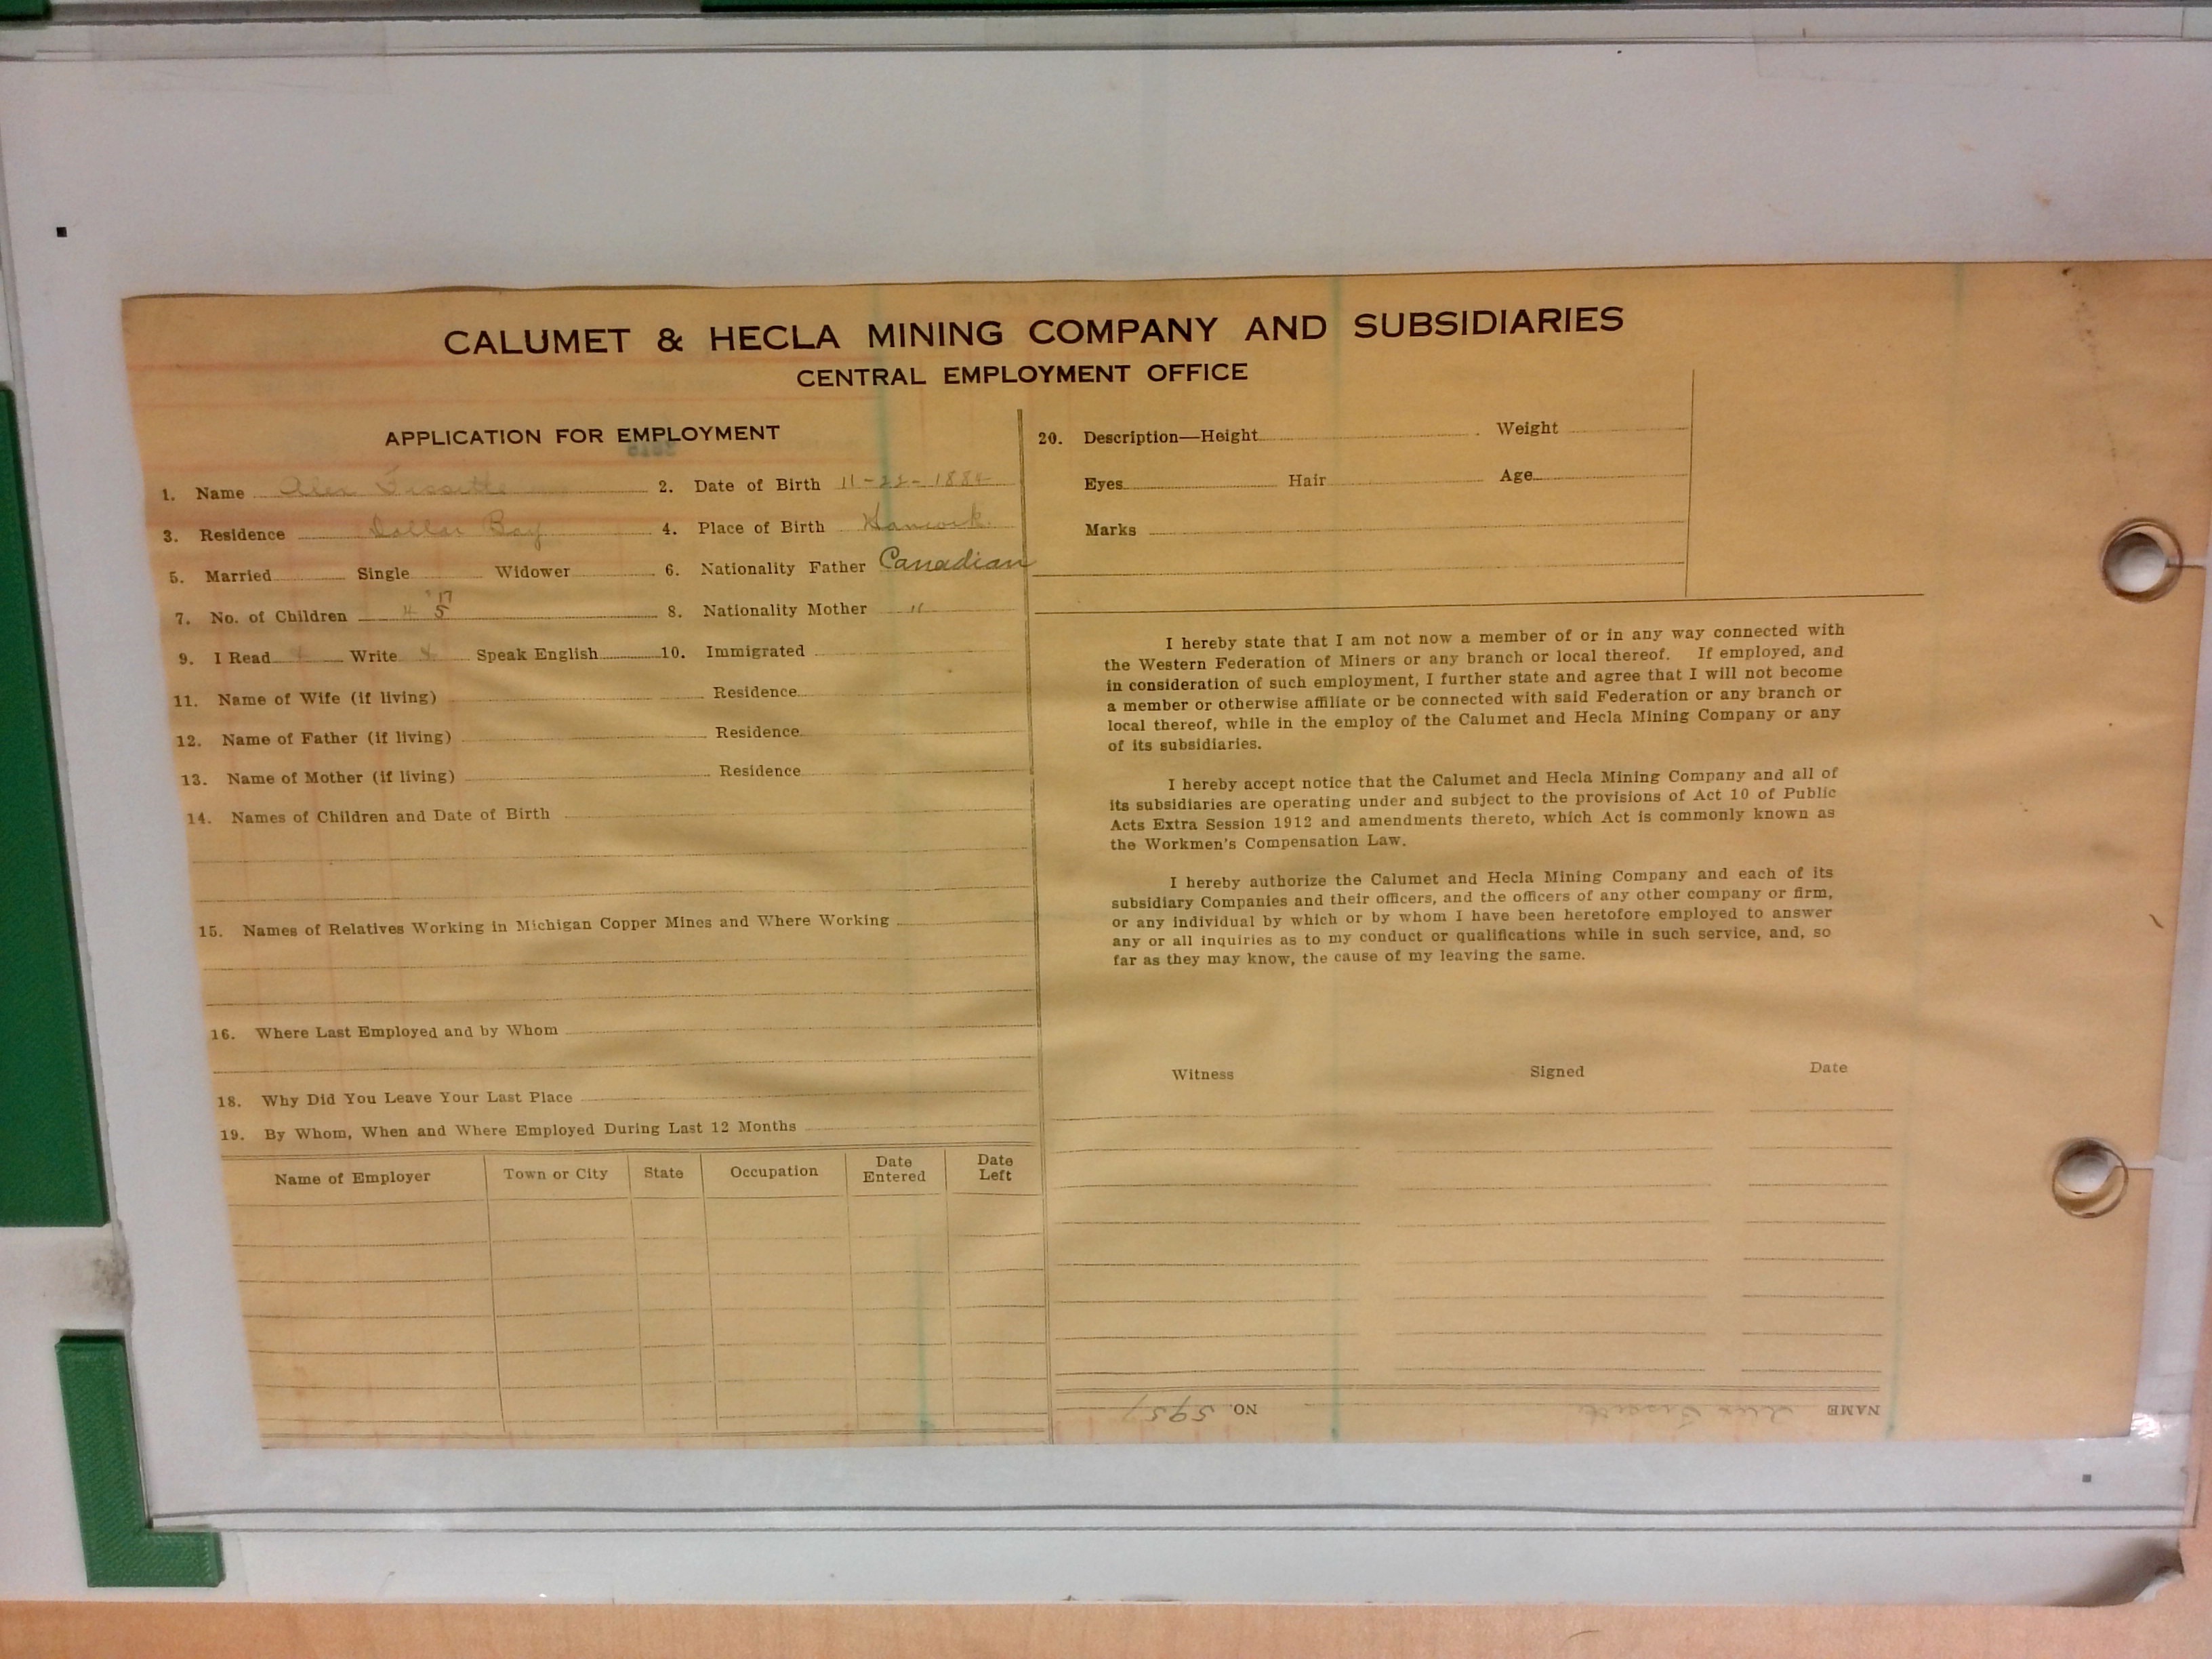 CALUMET & HECLA MINING COMPANY AND SUBSIDIARIES
CENTRAL EMPLOYMENT OFFICE
APPLICATION FOR EMPLOYMENT
1. Name Alex 2. Date of Birth 11-22-188
3. Residence Dollar Bay 4. Place of Birth Hancock
5. Married Single Widower 6. Nationality Father Canadian
'17
7. No. of Children 4 5 8. Nationality Mother "
9. I Read Write Speak English 10. Immigrated
11. Name of Wife (if living) Residence
12. Name of Father (if living) Residence
13. Name of Mother (if living) Residence
14. Names of Children and Date of Birth
15. Names of Relatives Working in Michigan Copper Mines and Where Working
16. Where Last Employed and by Whom
18. Why Did You Leave Your Last Place
19. By Whom, When and Where Employed During Last 12 Months
Name of Employer Town or City State Occupation Date Entered Date Left
20. Description—Height Weight
Eyes Hair Age
Marks
I hereby state that I am not now a member of or in any way connected with
the Western Federation of Miners or any branch or local thereof. If employed, and
in consideration of such employment, I further state and agree that I will not become
a member or otherwise affiliate or be connected with said Federation or any branch or
local thereof, while in the employ of the Calumet and Hecla Mining Company or any
of its subsidiaries.
I hereby accept notice that the Calumet and Hecla Mining Company and all of
its subsidiaries are operating under and subject to the provisions of Act 10 of Public
Acts Extra Session 1912 and amendments thereto, which Act is commonly known as
the Workmen's Compensation Law.
I hereby authorize the Calumet and Hecla Mining Company and each of its
subsidiary Companies and their officers, and the officers of any other company or firm,
or any individual by which or by whom I have been heretofore employed to answer
any or all inquiries as to my conduct or qualifications while in such service, and, so
far as they may know, the cause of my leaving the same.
Witness Signed Date
NAME Alex NO. 5957